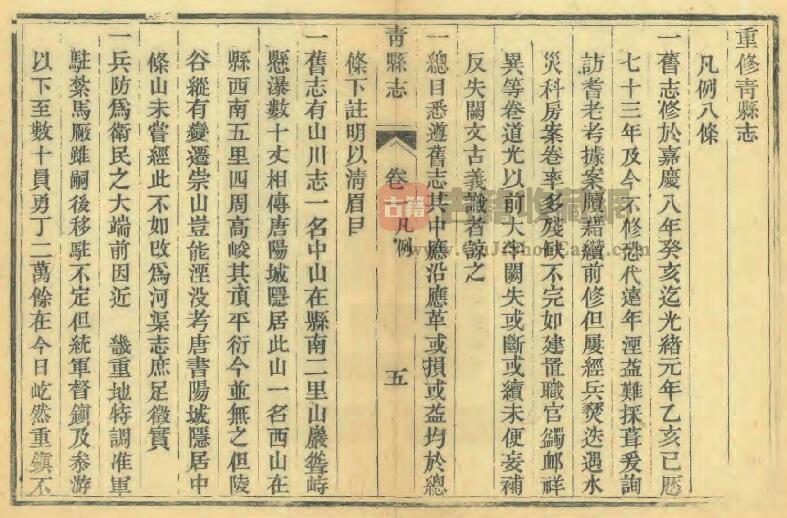 重修靑縣志
凡例八條
一舊志修於嘉慶八年癸亥迄光緒元年乙亥已厯
七十三年及今不修恐代遠年湮益難採葺爰詢
訪耆老考據案牘藉纘前修但屢經兵燹迭遇水
災科房案卷率多殘缺不完如建置職官蠲卹祥
異等卷道光以前大半闕失或斷或續未便妄補
反失闕文古義識者諒之
一總目悉遵舊志其中應沿應革或損或益均於總
靑縣志
卷
凡例
五
條下註明以清眉目
一舊志有山川志一名中山在縣南二里山巖聳峙
懸瀑數十丈相傳唐陽城隱居此山一名西山在
縣西南五里四周高峻其頂平衍今並無之但陵
谷縱有變遷崇山豈能湮没考唐書陽城隱居中
條山未嘗經此不如改爲河渠志庶足徵實
一兵防爲衛民之大端前因近 畿重地特調准軍
駐紮馬厰雖嗣後移駐不定但統軍督鎭及叅游
以下至數十員勇丁二萬餘在今日屹然重鎭不
古籍收藏网
www.GuJiShouCang.com